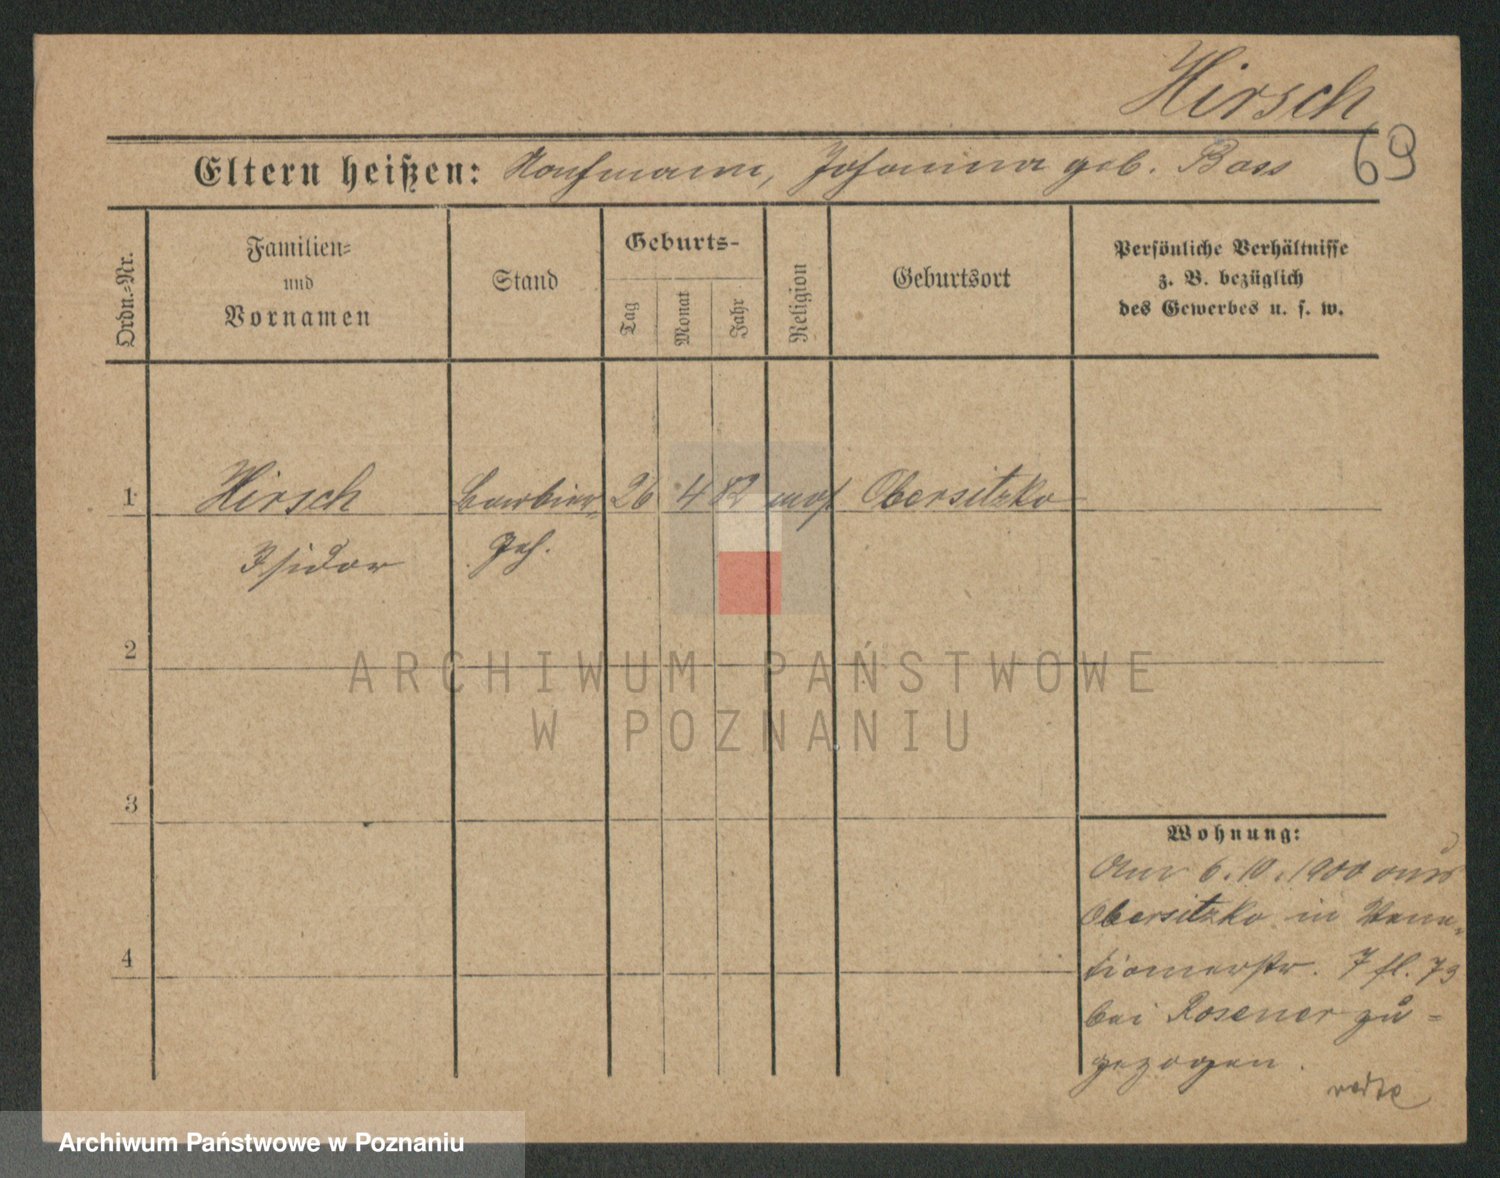 Hirsch
69
Eltern heißen: Kaufmann, Johanna geb. Bass
Ordn.-Nr.
Familien-
und
Vornamen
Stand
Geburts-
Tag
Monat
Jahr
Religion
Geburtsort
Persönliche Verhältnisse
z. B. bezüglich
des Gewerbes u. s. w.
1 Hirsch Barbier 26 4 82 mos Obersitzko
Isidor Geh.
2
3
4
Wohnung:
Am 6.10.1900 aus
Obersitzko in
7 fl. 73
bei Rosener zu-
gezogen.
ARCHIWUM PAŃSTWOWE
W POZNANIU
Archiwum Państwowe w Poznaniu